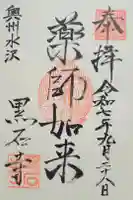 奉拝
令和七年九月二十八日
薬師如来
奥州水沢
黒石寺